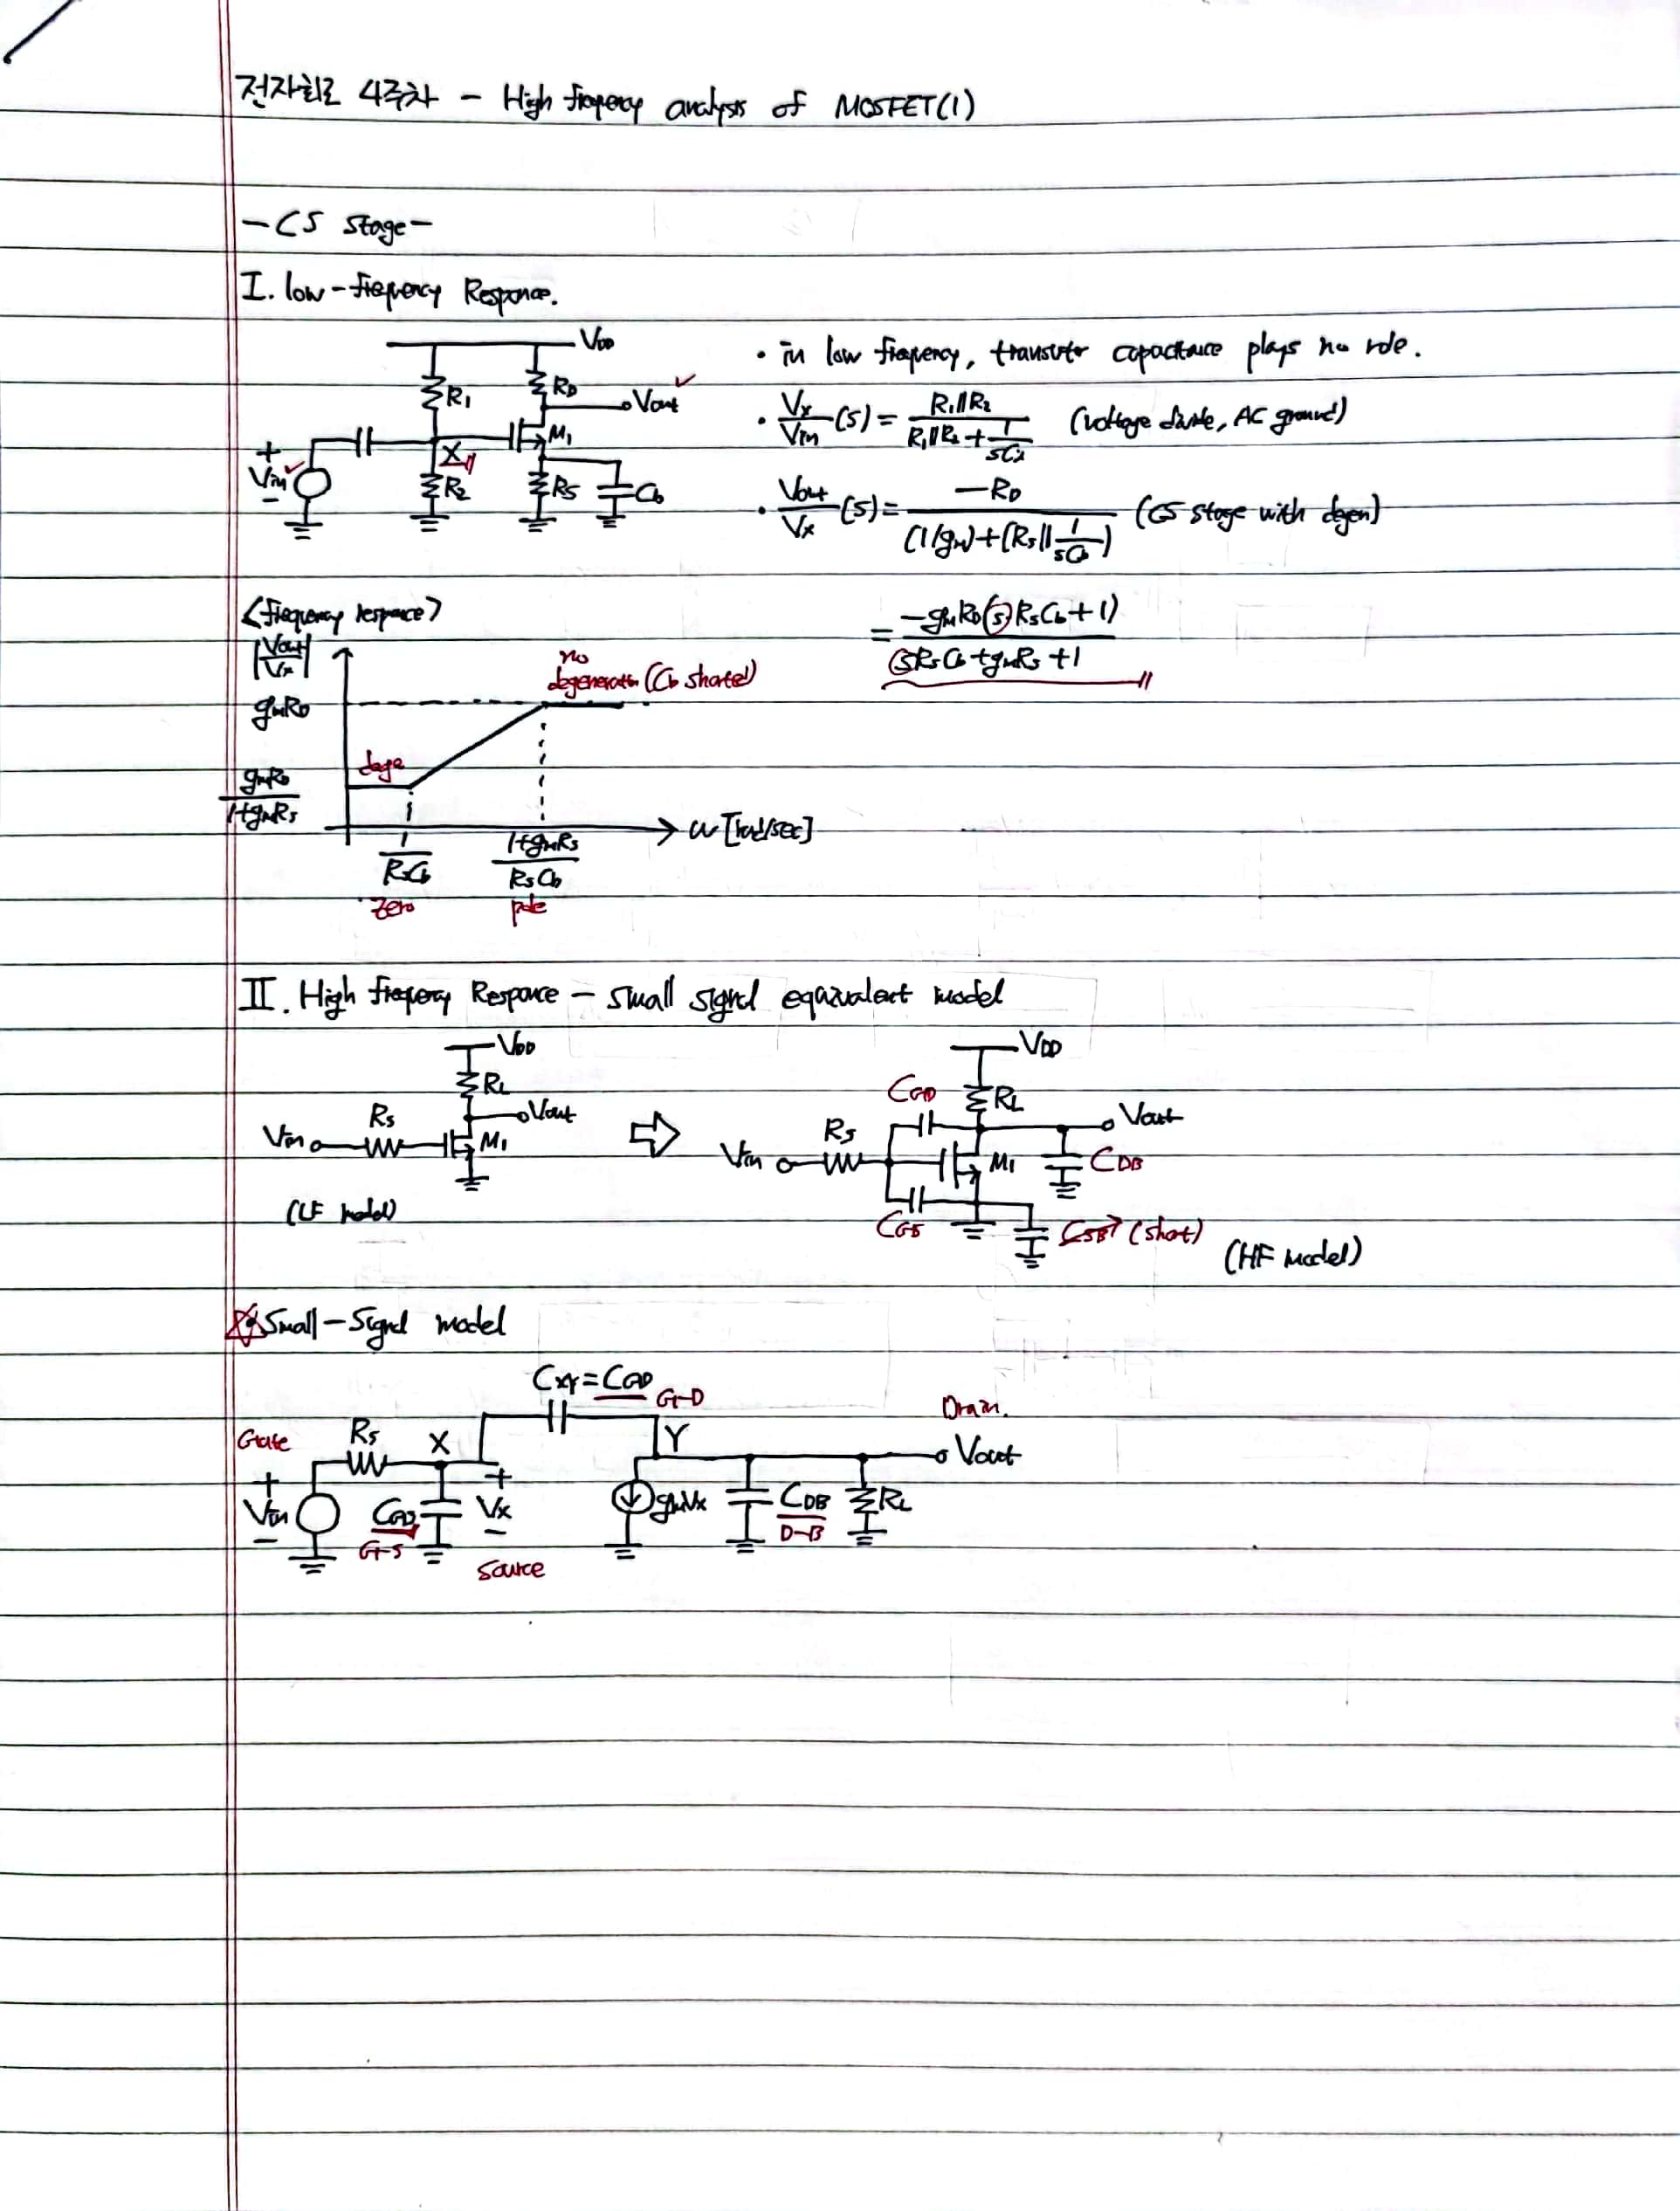 전자회로 4주차 - High frequency analysis of MOSFET(1)
- CS stage -
I. low-frequency Response.
VDD
R1 RD
Vout
M1
X
+
Vin
-
R2 RS Cb
• in low frequency, transistor capacitance plays no role.
• Vx/Vin (s) = R1||R2 / (R1||R2 + 1/sCi) (voltage divide, AC ground)
• Vout/Vx (s) = -RD / ((1/gm)+(Rs||1/sCb)) (CS stage with degen)
= -gmRD(sRsCb+1) / (sRsCb+gmRs+1)
<frequency response>
|Vout/Vx|
no
degeneration (Cb shorted)
gmRD
dege
gmRD/1+gmRs
ω [rad/sec]
1/RsCb 1+gmRs/RsCb
zero pole
II. High frequency Response - small signal equivalent model
VDD
RL
Vout
Rs
Vin
M1
(LF model)
⇨
VDD
CGD
RL
Vout
Rs
Vin
M1
CDB
CGS
CSB → (short)
(HF model)
☆ Small-Signal model
CXY = CGD
G-D
Drain.
Gate
Rs
X
Y
Vout
+
Vin
-
CGS
G-S
+
Vx
-
Source
gmVx
CDB
D-B
RL